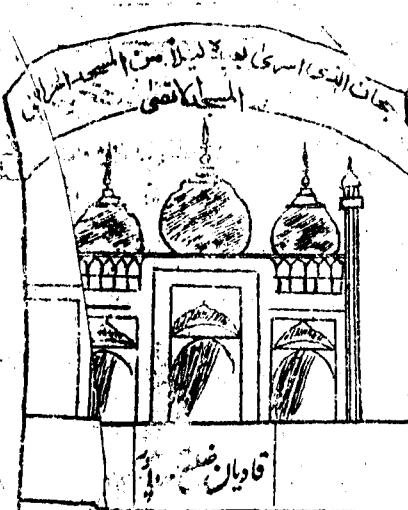 سبحان الذی اسریٰ بعبدہ لیلاً من المسجد الحرام
المسجد الاقصیٰ
قادیان ضلع